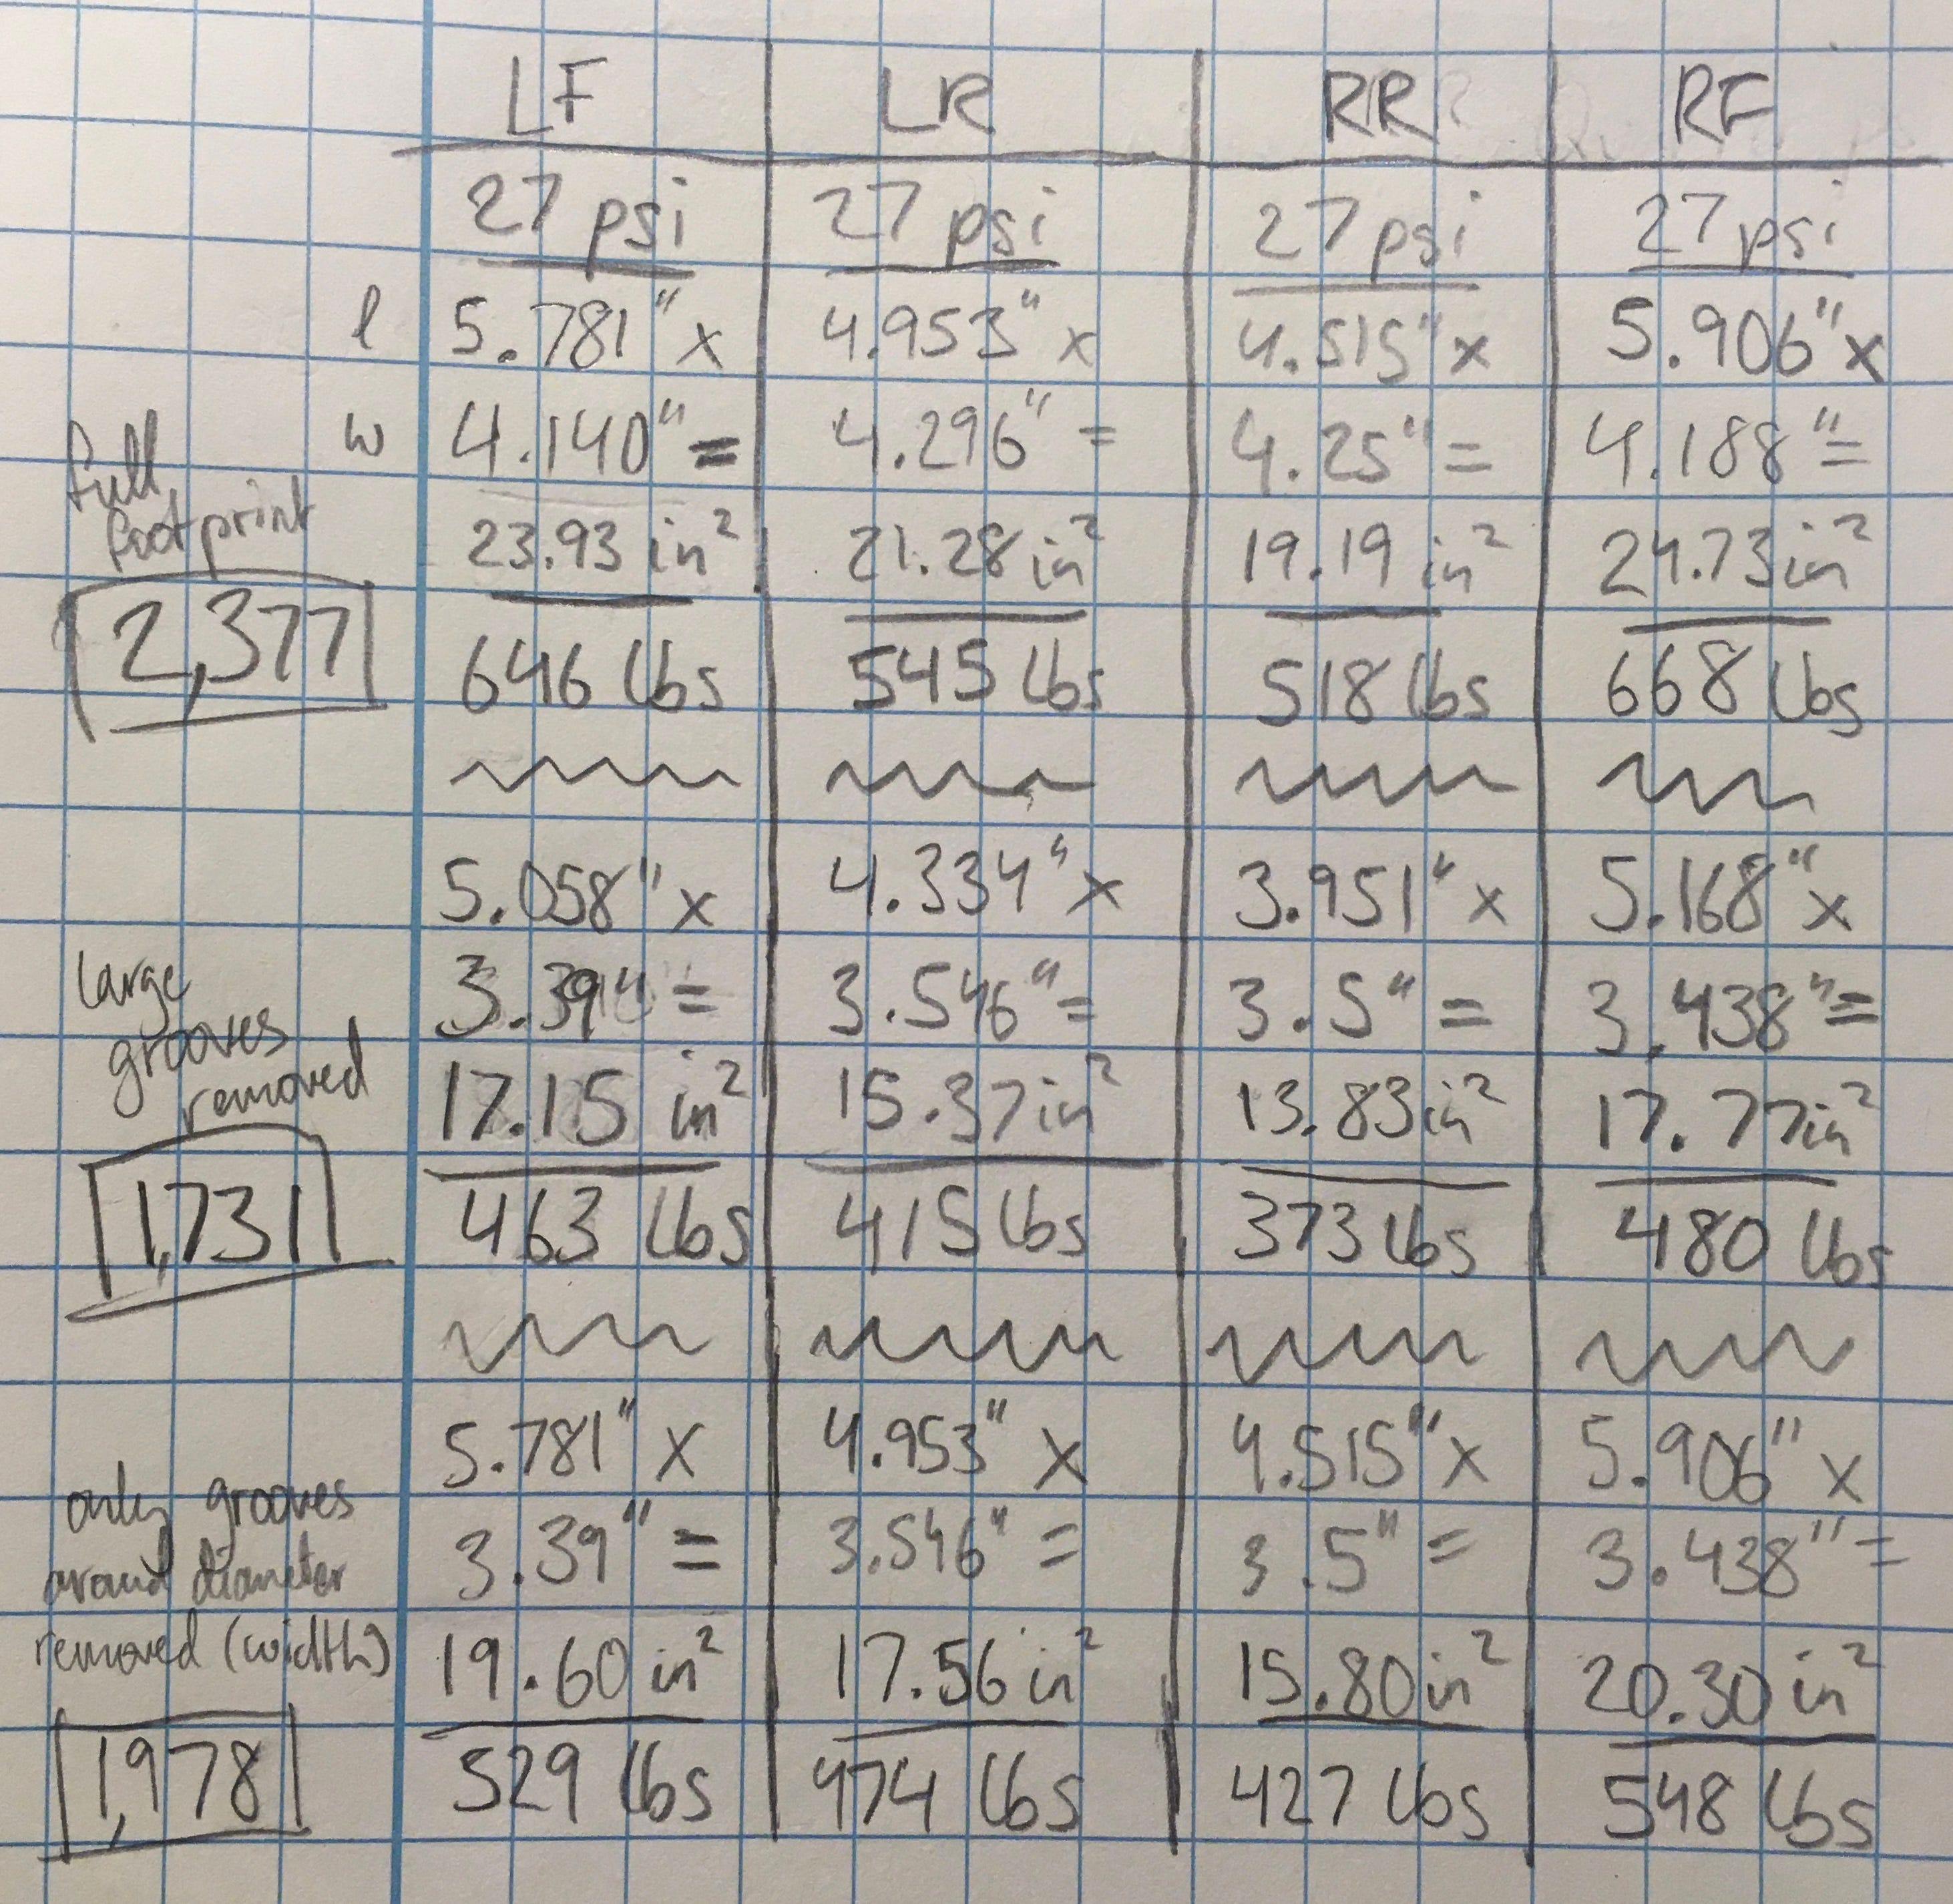 LF LR RR RF
27 psi 27 psi 27 psi 27 psi
l 5.781" x 4.953" x 4.515" x 5.906" x
w 4.140" = 4.296" = 4.25" = 4.188" =
full
footprint 23.93 in² 21.28 in² 19.19 in² 24.73 in²
2,377 646 lbs 545 lbs 518 lbs 668 lbs
5.058" x 4.334" x 3.951" x 5.168" x
large
grooves 3.39" = 3.546" = 3.5" = 3.438" =
removed 17.15 in² 15.37 in² 13.83 in² 17.77 in²
1,731 463 lbs 415 lbs 373 lbs 480 lbs
5.781" x 4.953" x 4.515" x 5.906" x
only grooves
around diameter 3.39" = 3.546" = 3.5" = 3.438" =
removed (width) 19.60 in² 17.56 in² 15.80 in² 20.30 in²
1,978 529 lbs 474 lbs 427 lbs 548 lbs